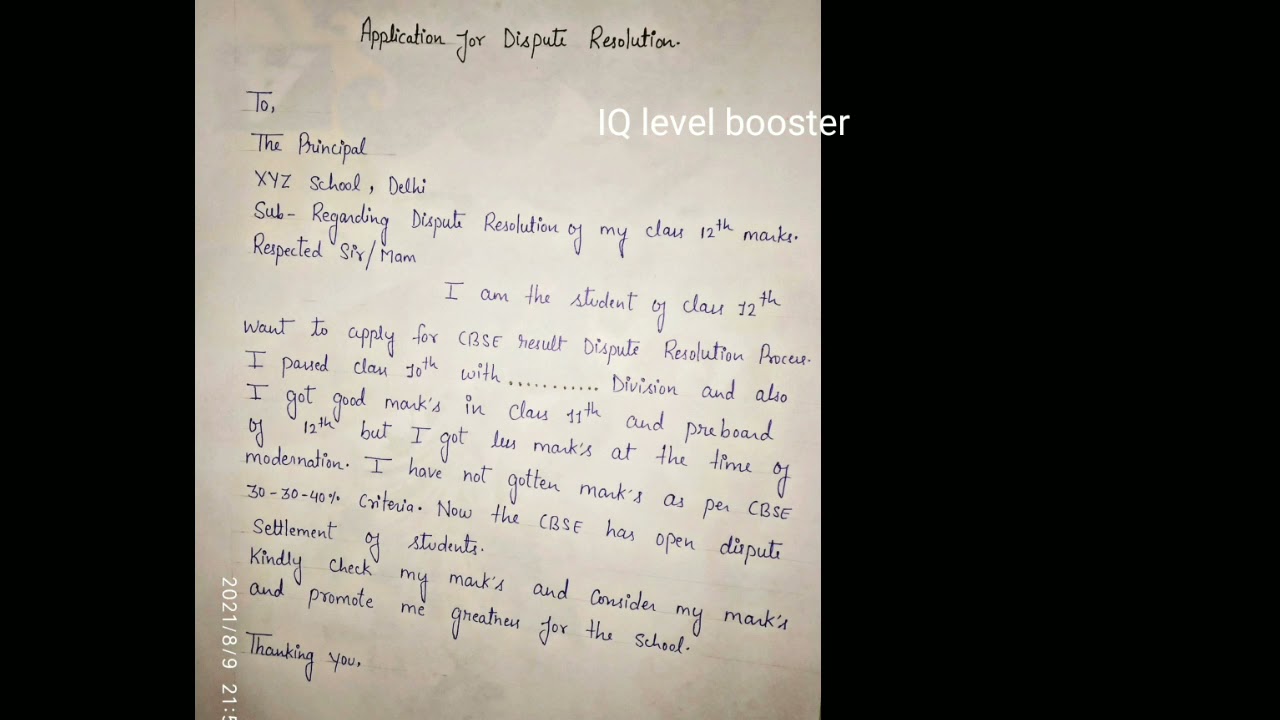 Application for Dispute Resolution.
IQ level booster
To,
The Principal
XYZ School, Delhi
Sub- Regarding Dispute Resolution of my class 12th marks.
Respected Sir/Mam
I am the student of class 12th
want to apply for CBSE result Dispute Resolution Process.
I passed class 10th with ........... Division and also
I got good mark's in class 11th and preboard
of 12th but I got less mark's at the time of
modernation. I have not gotten mark's as per CBSE
30-30-40% Criteria. Now the CBSE has open dispute
Settlement of students.
Kindly check my mark's and Consider my mark's
and promote me greatness for the school.
Thanking you,
2021/8/9 21:5